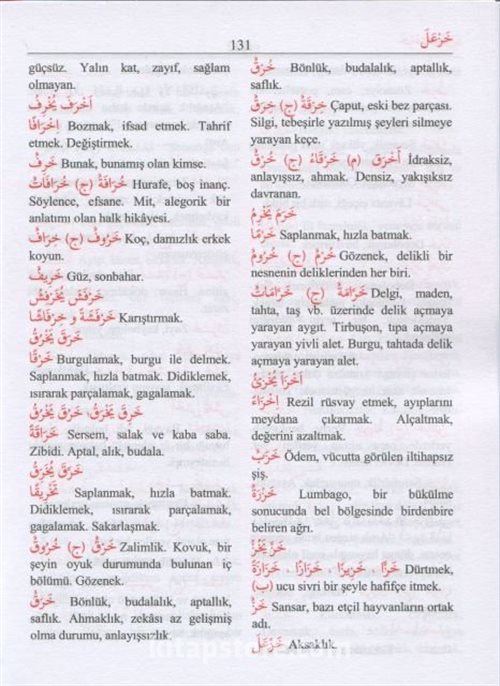 131
خَزْعَلَ
güçsüz. Yalın kat, zayıf, sağlam
olmayan.
أَخْرَفَ يُخْرِفُ
إِخْرَافًا Bozmak, ifsad etmek. Tahrif
etmek. Değiştirmek.
خَرِفٌ Bunak, bunamış olan kimse.
خُرَافَةٌ (ج) خُرَافَاتٌ Hurafe, boş inanç.
Söylence, efsane. Mit, alegorik bir
anlatımı olan halk hikâyesi.
خَرُوفٌ (ج) خِرَافٌ Koç, damızlık erkek
koyun.
خَرِيفٌ Güz, sonbahar.
خَرْفَشَ يُخَرْفِشُ
خَرْفَشَةً و خِرْفَاشًا Karıştırmak.
خَرَقَ يَخْرُقُ
خَرْقًا Burgulamak, burgu ile delmek.
Saplanmak, hızla batmak. Didiklemek,
ısırarak parçalamak, gagalamak.
خَرِقَ يَخْرَقُ، خَرُقَ يَخْرُقُ
خَرَاقَةً Sersem, salak ve kaba saba.
Zibidi. Aptal, alık, budala.
خَرَّقَ يُخَرِّقُ
تَخْرِيقًا Saplanmak, hızla batmak.
Didiklemek, ısırarak parçalamak,
gagalamak. Sakarlaşmak.
خَرْقٌ (ج) خُرُوقٌ Zalimlik. Kovuk, bir
şeyin oyuk durumunda bulunan iç
bölümü. Gözenek.
خَرَقٌ Bönlük, budalalık, aptallık,
saflık. Ahmaklık, zekâsı az gelişmiş
olma durumu, anlayışsızlık.
خُرْقٌ Bönlük, budalalık, aptallık,
saflık.
خِرْقَةٌ (ج) خِرَقٌ Çaput, eski bez parçası.
Silgi, tebeşirle yazılmış şeyleri silmeye
yarayan keçe.
أَخْرَق (م) خَرْقَاءُ (ج) خُرْقٌ İdraksiz,
anlayışsız, ahmak. Densiz, yakışıksız
davranan.
خَرَمَ يَخْرِمُ
خَرْمًا Saplanmak, hızla batmak.
خُرْمٌ (ج) خُرُومٌ Gözenek, delikli bir
nesnenin deliklerinden her biri.
خَرَّامَةٌ (ج) خَرَّامَاتٌ Delgi, maden,
tahta, taş vb. üzerinde delik açmaya
yarayan aygıt. Tirbuşon, tıpa açmaya
yarayan yivli alet. Burgu, tahtada delik
açmaya yarayan alet.
أَخْزَأَ يُخْزِئُ
إِخْزَاءً Rezil rüsvay etmek, ayıplarını
meydana çıkarmak. Alçaltmak,
değerini azaltmak.
خَزَبٌ Ödem, vücutta görülen iltihapsız
şiş.
خُزَرَةٌ Lumbago, bir bükülme
sonucunda bel bölgesinde birdenbire
beliren ağrı.
خَزَّ يَخُزُّ
خَزًّا ، خَزِيزًا ، خَزَازًا ، خَزَازَةً Dürtmek,
(ب) ucu sivri bir şeyle hafifçe itmek.
خَزٌّ Sansar, bazı etçil hayvanların ortak
adı.
خَزْعَلَ Aksaklık.